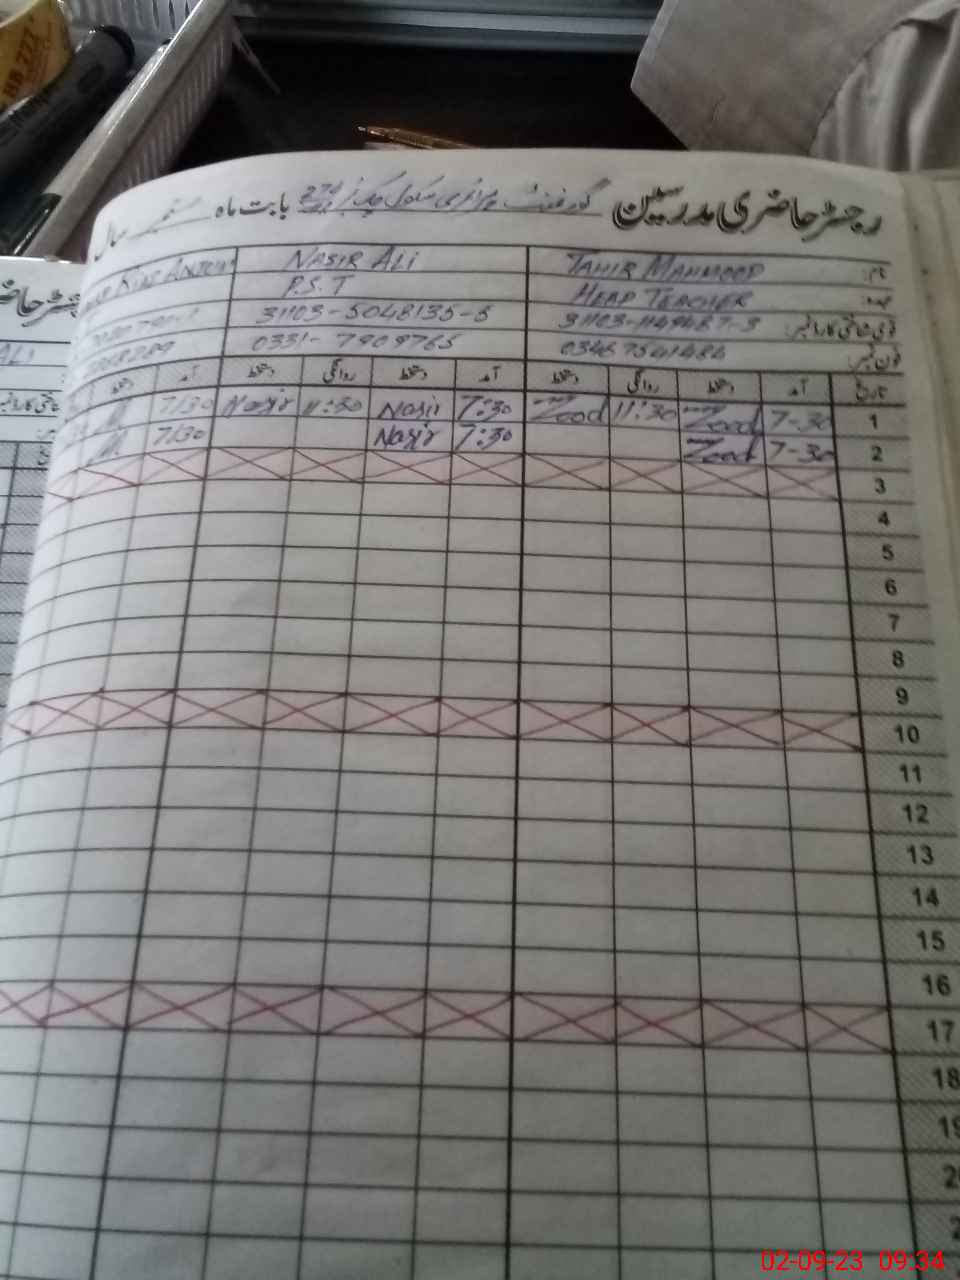 رجسٹر حاضری مدرسین گورنمنٹ پرائمری سکول چک نمبر بابت ماہ ستمبر سال
نام: TAHIR MAHMOOD NASIR ALI
عہدہ: HEAD TEACHER P.S.T
قومی شناختی کارڈ نمبر: 31103-1149487-3 31103-5048135-5
فون نمبر: 03467541486 0331-7909765
تاریخ آمد دستخط روانگی دستخط آمد دستخط روانگی دستخط آمد دستخط
1 7-30 Zood 11:30 Zood 7:30 Nasir 11:30 Nasir 7/30
2 7-30 Zood 7:30 Nasir 7/30
3
4
5
6
7
8
9
10
11
12
13
14
15
16
17
18
ALI
BB 777
02-09-23 09:34